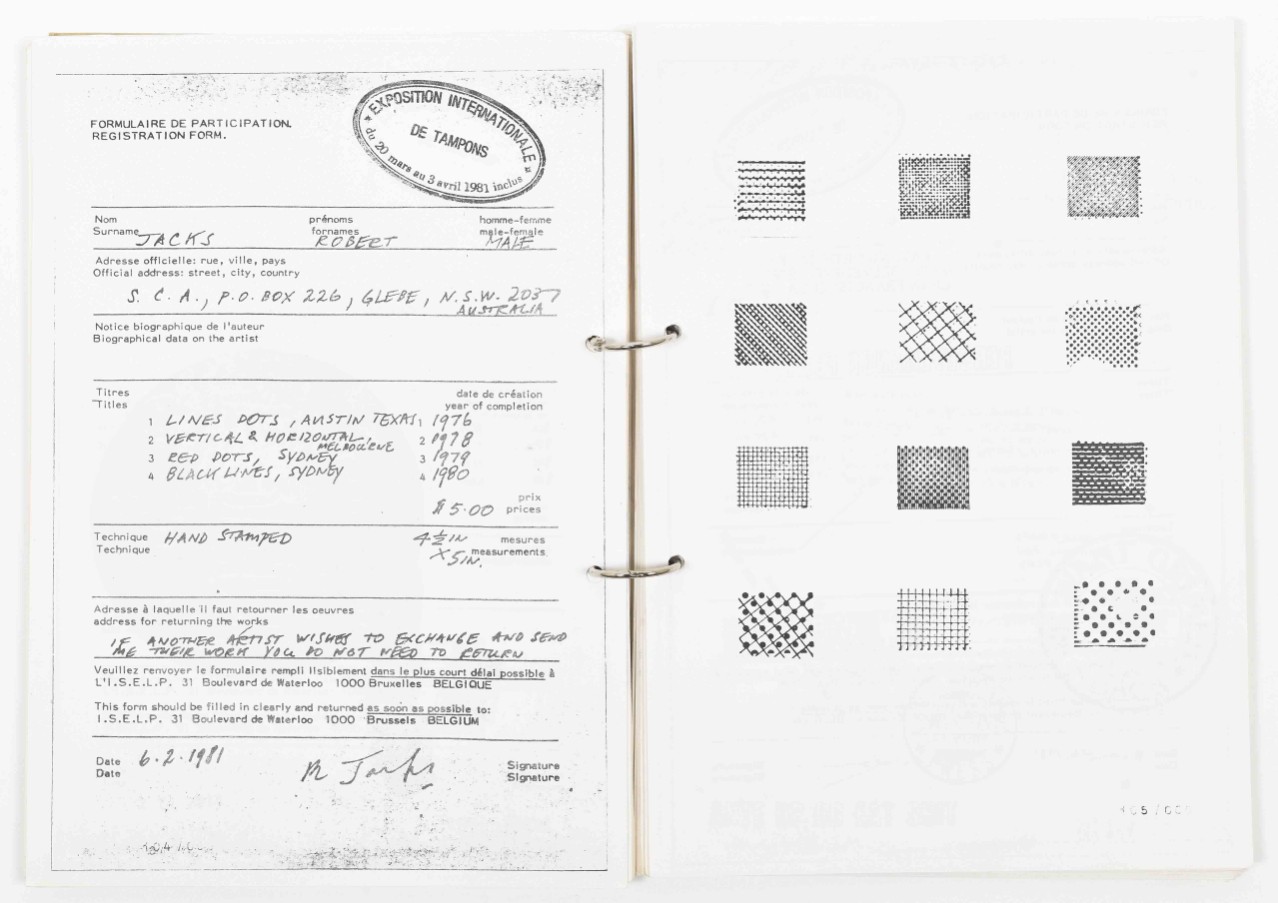 FORMULAIRE DE PARTICIPATION.
REGISTRATION FORM.
* EXPOSITION INTERNATIONALE *
DE TAMPONS
du 20 mars au 3 avril 1981 inclus
Nom prénoms homme-femme
Surname fornames male-female
JACKS ROBERT MALE
Adresse officielle: rue, ville, pays
Official address: street, city, country
S. C. A., P.O. BOX 226, GLEBE, N.S.W. 2037
AUSTRALIA
Notice biographique de l'auteur
Biographical data on the artist
Titres date de création
Titles year of completion
1 LINES DOTS, AUSTIN TEXAS, 1 1976
2 VERTICAL & HORIZONTAL, MELBOURNE 2 1978
3 RED DOTS, SYDNEY 3 1979
4 BLACK LINES, SYDNEY 4 1980
prix
$5.00 prices
Technique HAND STAMPED 4½IN mesures
Technique X5IN. measurements
Adresse à laquelle il faut retourner les oeuvres
address for returning the works
IF ANOTHER ARTIST WISHES TO EXCHANGE AND SEND
ME THEIR WORK YOU DO NOT NEED TO RETURN
Veuillez renvoyer le formulaire rempli lisiblement dans le plus court délai possible à
L'I.S.E.L.P. 31 Boulevard de Waterloo 1000 Bruxelles BELGIQUE
This form should be filled in clearly and returned as soon as possible to:
I.S.E.L.P. 31 Boulevard de Waterloo 1000 Brussels BELGIUM
Date 6.2.1981 R Jacks Signature
Date Signature